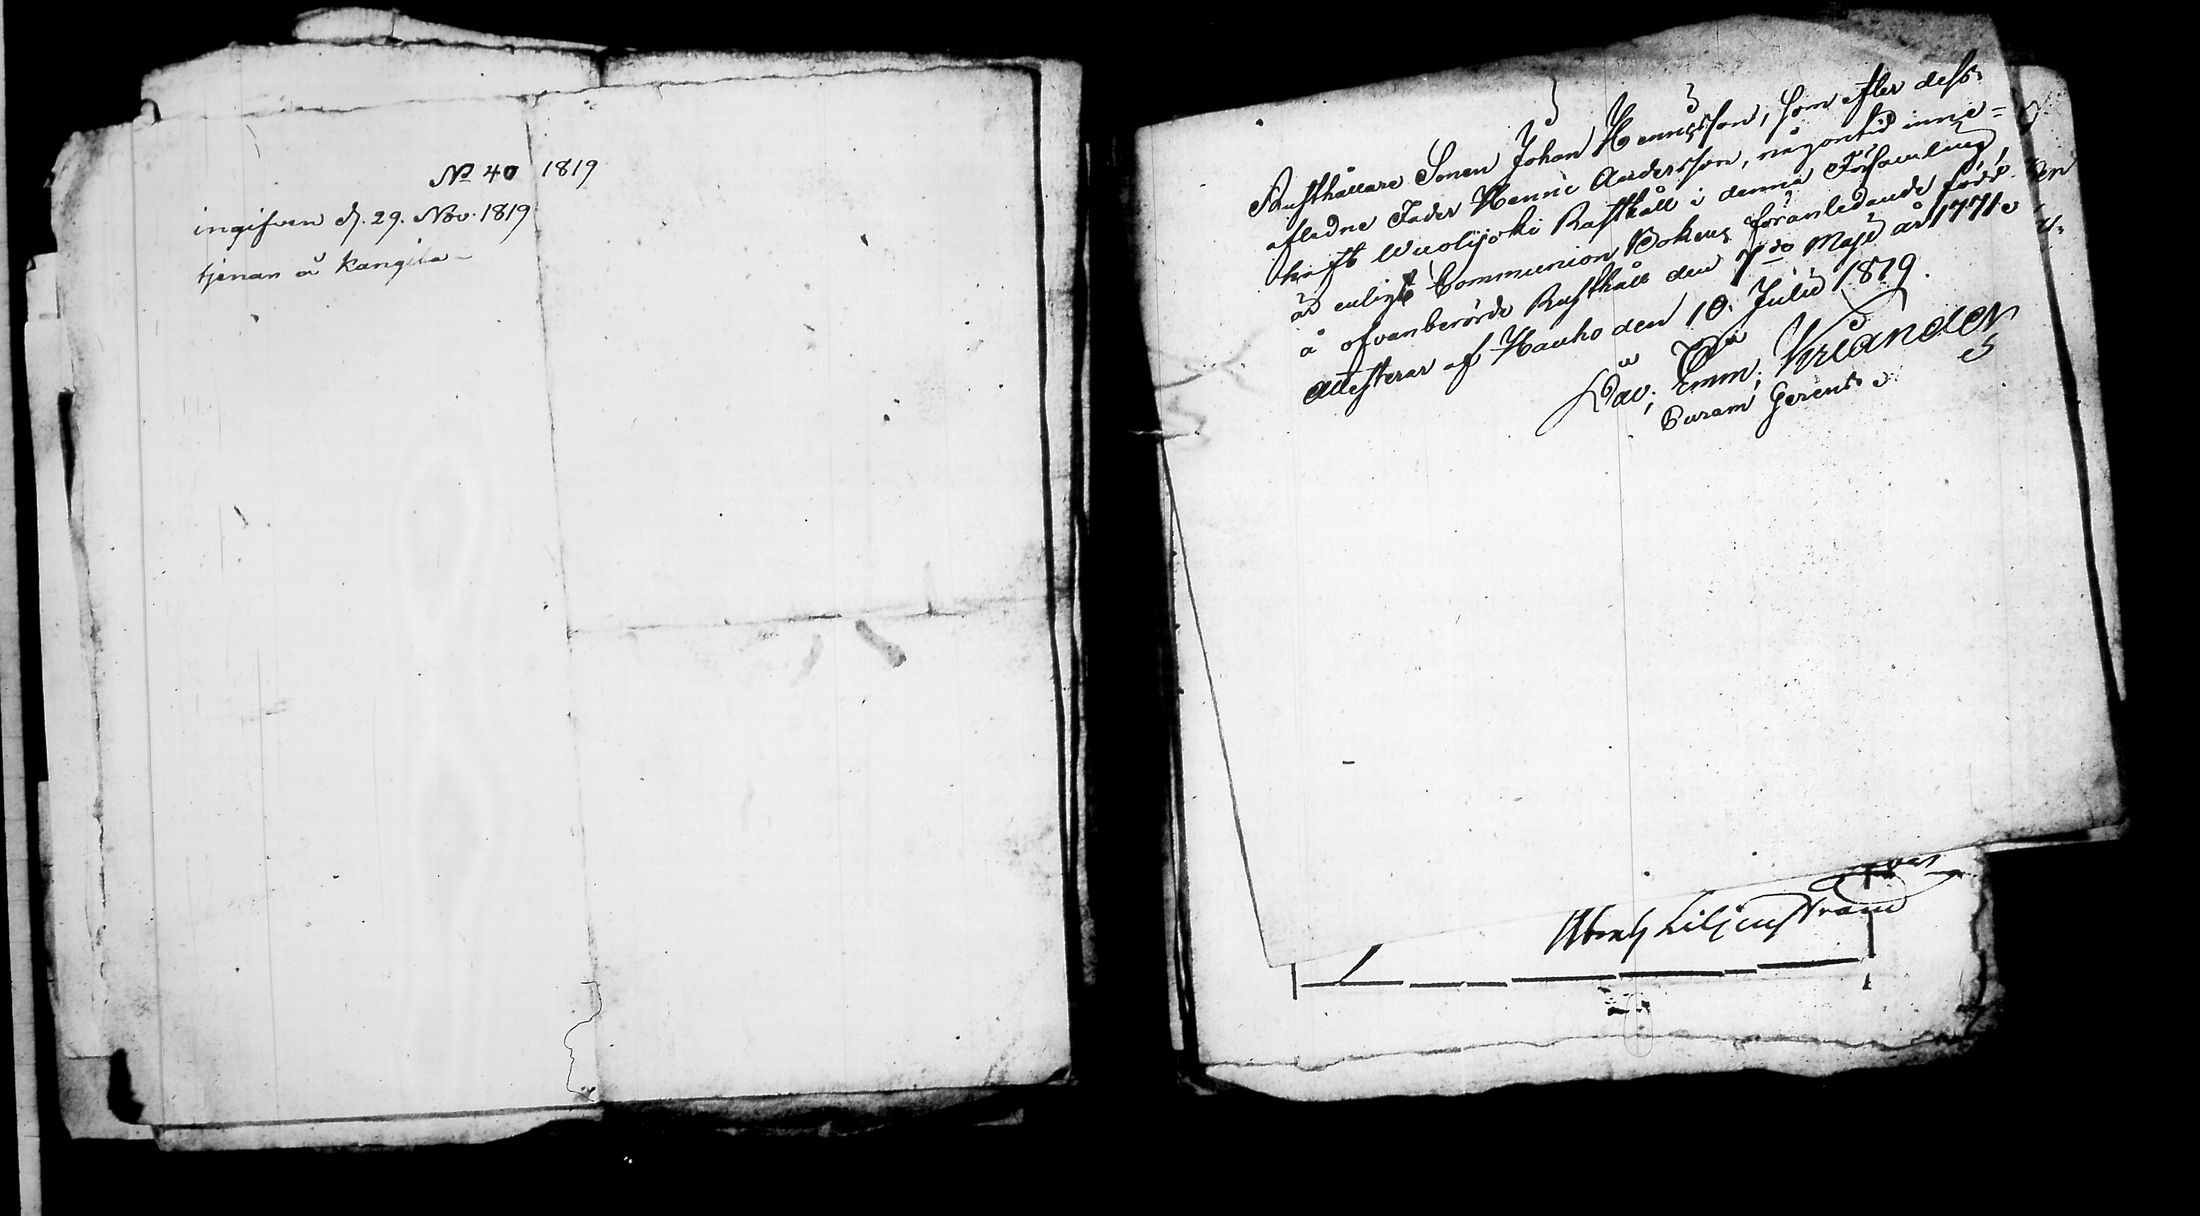 No 40 1819
ingifven d. 29. Nov. 1819
tjenar å Kangila
Rusthållare Sonen Johan Hennesson, som efter dess
afledne Fader Henric Andersson, någon tid inne=
haft Wuolijoki Rusthåll i denna Församling,
är enligt Communion Bokens föranledande född
å ofvanberörde Rusthåll den 7de Maji år 1771.
Attesterar af Hauho den 10. Julii 1819.
Dav. Emm. Kriander
Curam Gerens.
Liljenstrand